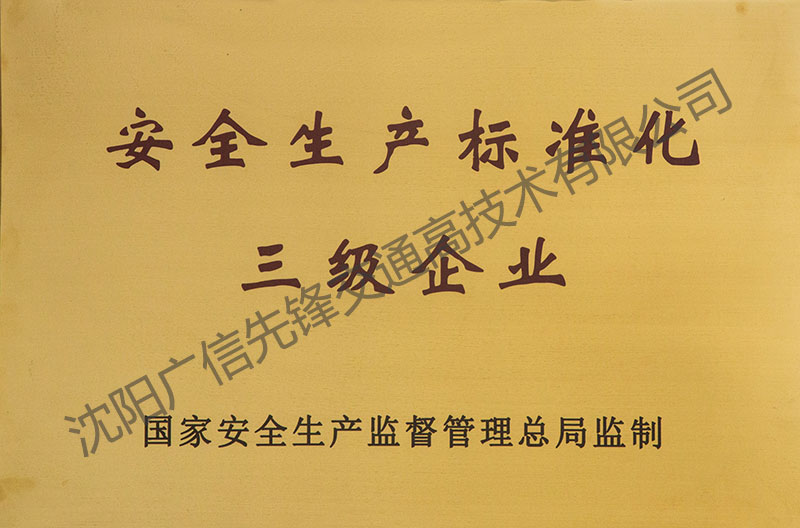 安全生产标准化
三级企业
国家安全生产监督管理总局监制
沈阳广信先锋交通高技术有限公司